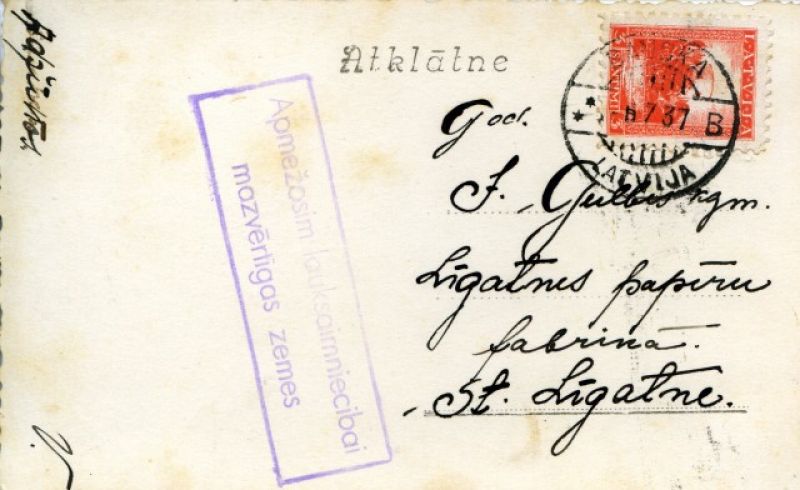 Atklātne
LATVIJA
7 37 B
LATVIJA
God.
J. Gulbis kgm.
Līgatnes papīru
fabrikā.
St. Līgatne.
Apmežosim lauksaimniecībai
mazvērtīgas zemes